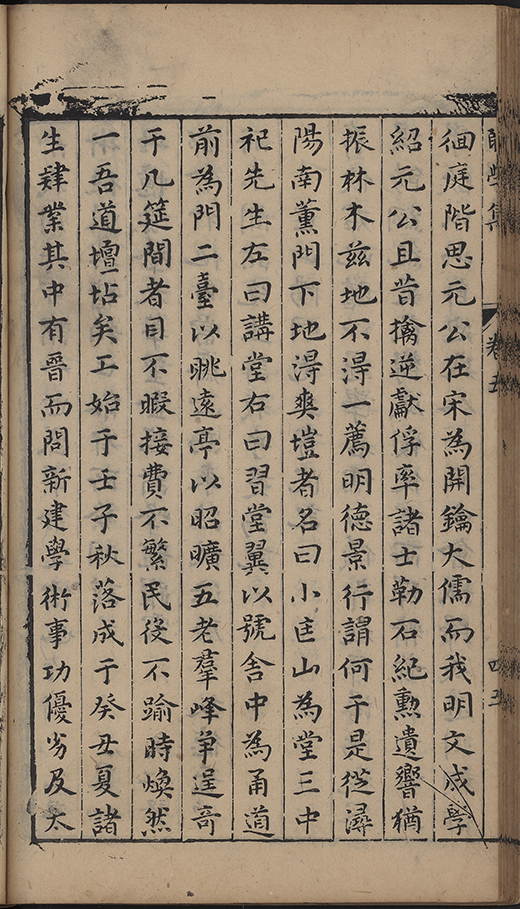 集
卷五
四五
徊庭階思元公在宋為開鑰大儒而我明文成學
紹元公且昔擒逆獻俘率諸士勒石紀勲遺響猶
振林木兹地不淂一薦明德景行謂何于是從潯
陽南薰門下地淂爽塏者名曰小匡山為堂三中
祀先生左曰講堂右曰習堂翼以號舎中為甬道
前為門二臺以眺遠亭以昭曠五老羣峰争逞奇
于几筵間者目不暇接費不繁民役不踰時煥然
一吾道壇坫矣工始于壬子秋落成于癸丑夏諸
生肄業其中有晉而問新建學術事功優劣及太